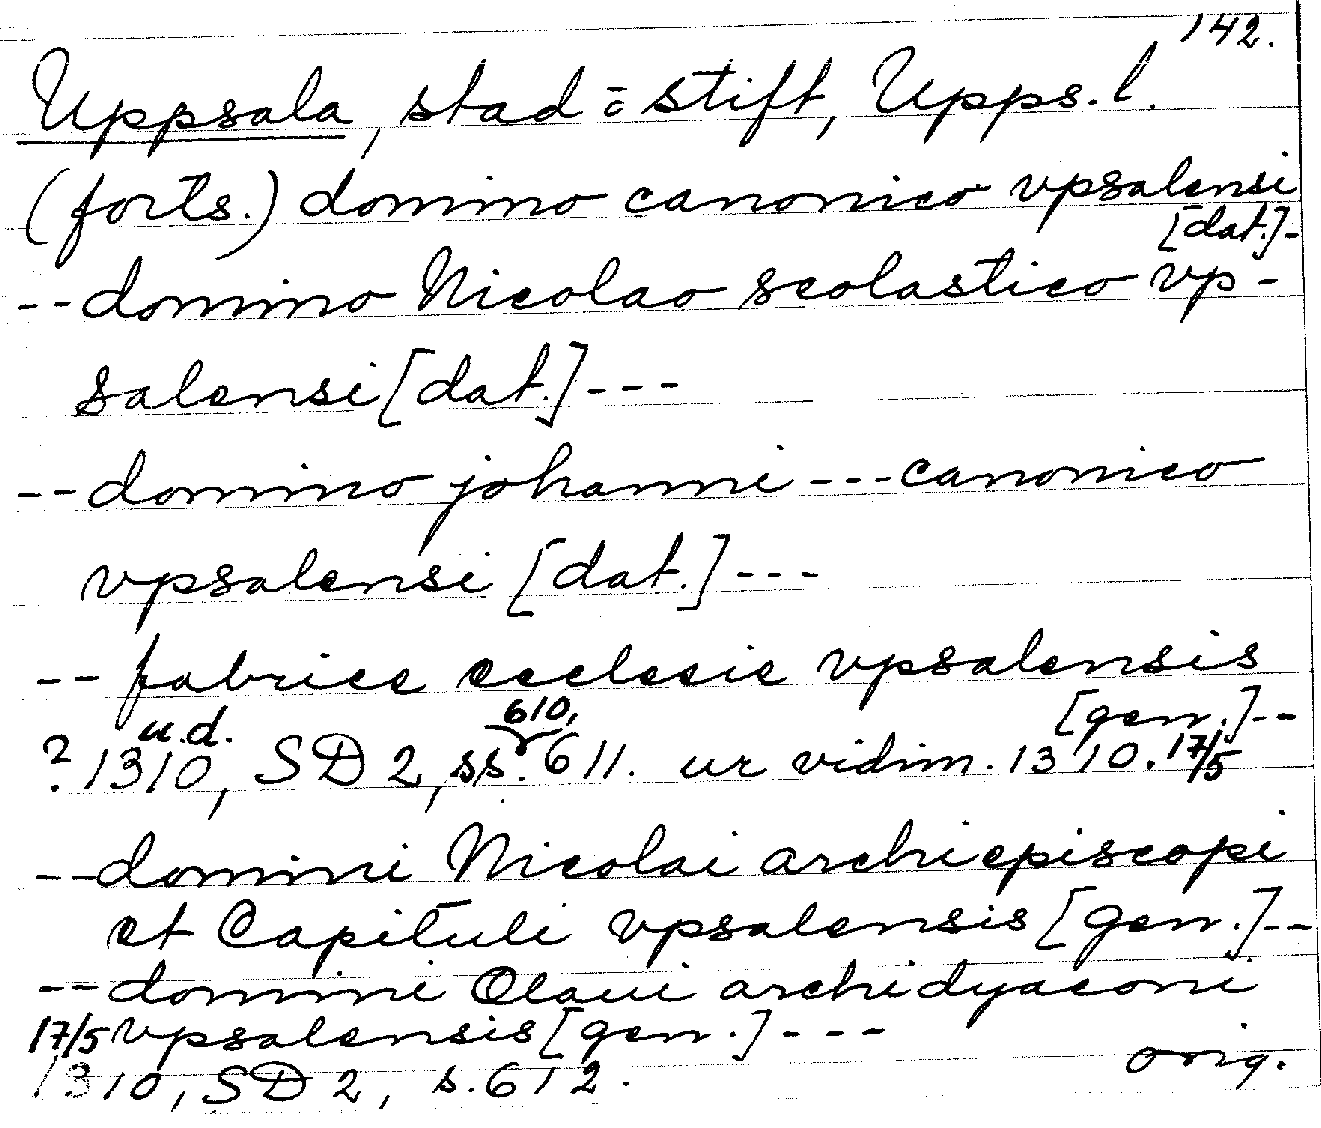 142.
Uppsala, stad o stift, Upps. l.
(forts.) domino canonico vpsalensi
[dat.]-
-- domino Nicolao scolastico vp-
salensi [dat.] ---
-- domino johanni --- canonico
vpsalensi [dat.] ---
-- fabrice ecclesie vpsalensis
[gen.]--
? 1310, u.d. SD 2, ss. 610, 611. ur vidim. 1310. 17/5
-- domini Nicolai archiepiscopi
et Capituli vpsalensis [gen.]--
-- domini Olaui archidyaconi
vpsalensis [gen.] ---
17/5 1310, SD 2, s. 612. orig.